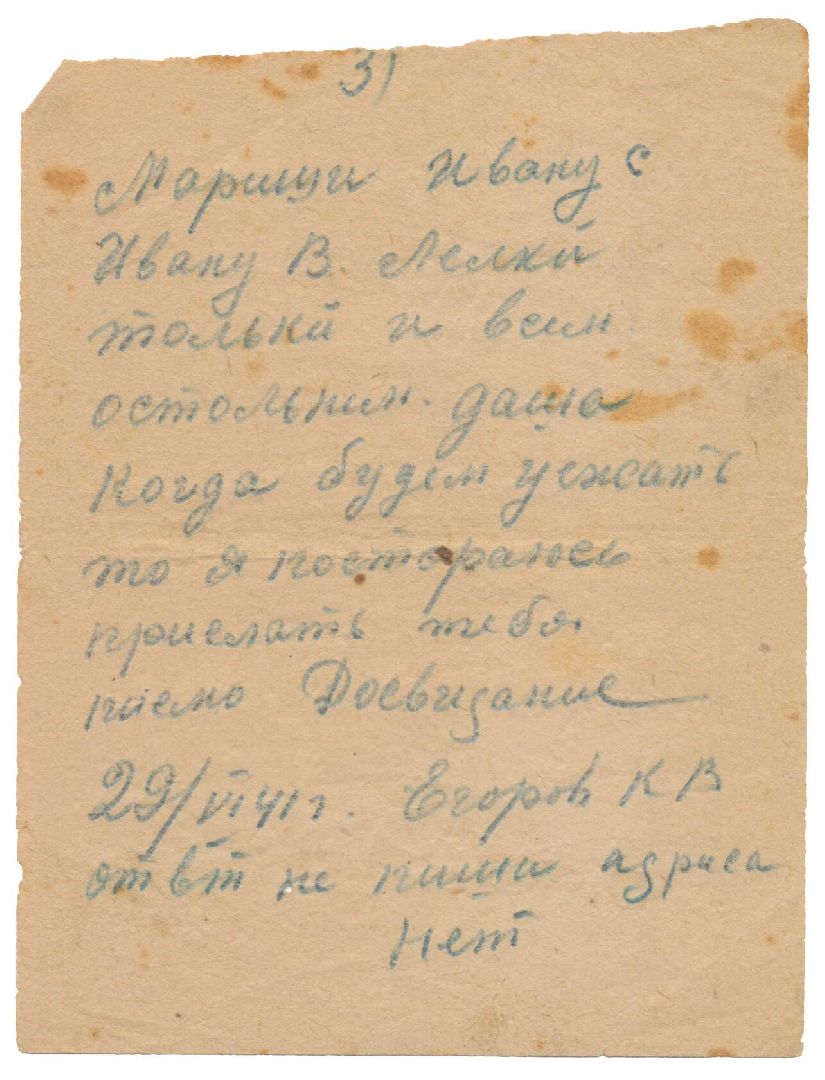 3)
Марищи Ивану С
Ивану В. Лелки
тольки и всем
остольним. Даша
когда будем уежать
то я постораюсь
прислать тебя
писмо Досвидание
29/VI 41 г. Егоров К В
отвт не пиши адриса
нет